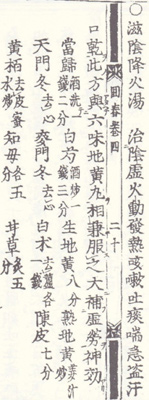 ○滋陰降火湯 治陰虛火動發熱咳嗽吐痰喘急盜汗
回春卷四 二十
口乾此方與六味地黃丸相兼服之大補虛勞神効
當歸酒洗一錢二分 白芍酒炒一錢三分 生地黃八分 熟地黃姜汁炒
天門冬去心 麥門冬去心 白朮去蘆各一錢 陳皮七分
黃栢去皮蜜水炒 知母各五分 甘草炙五分